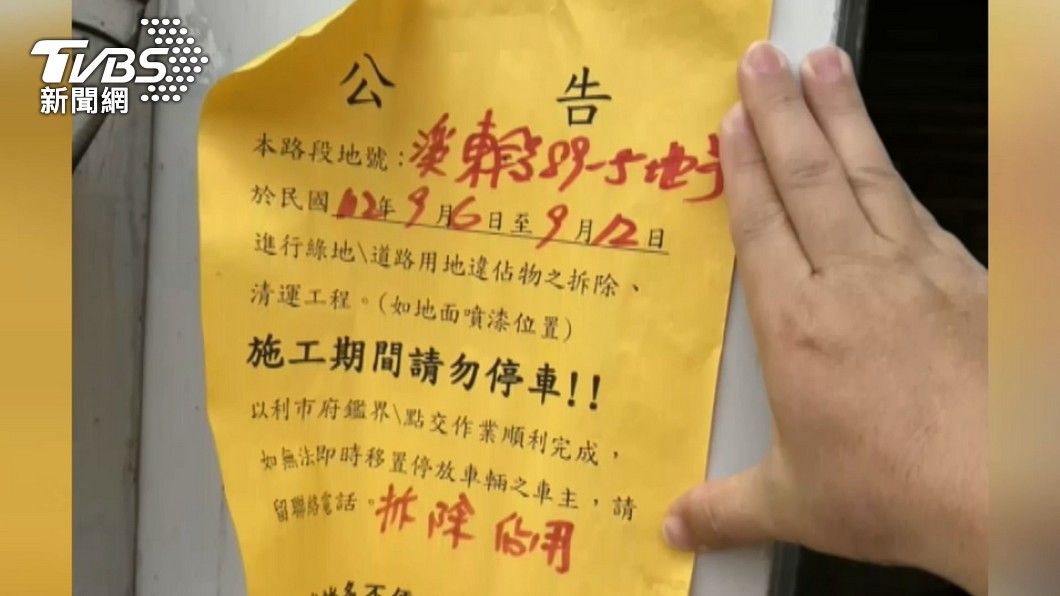 TVBS
新聞網
公告
本路段地號：溪東段89-5地号
於民國112年9月6日至9月12日
進行綠地\道路用地違佔物之拆除、
清運工程。(如地面噴漆位置)
施工期間請勿停車!!
以利市府鑑界\點交作業順利完成，
如無法即時移置停放車輛之車主，請
留聯絡電話。拆除 佔用